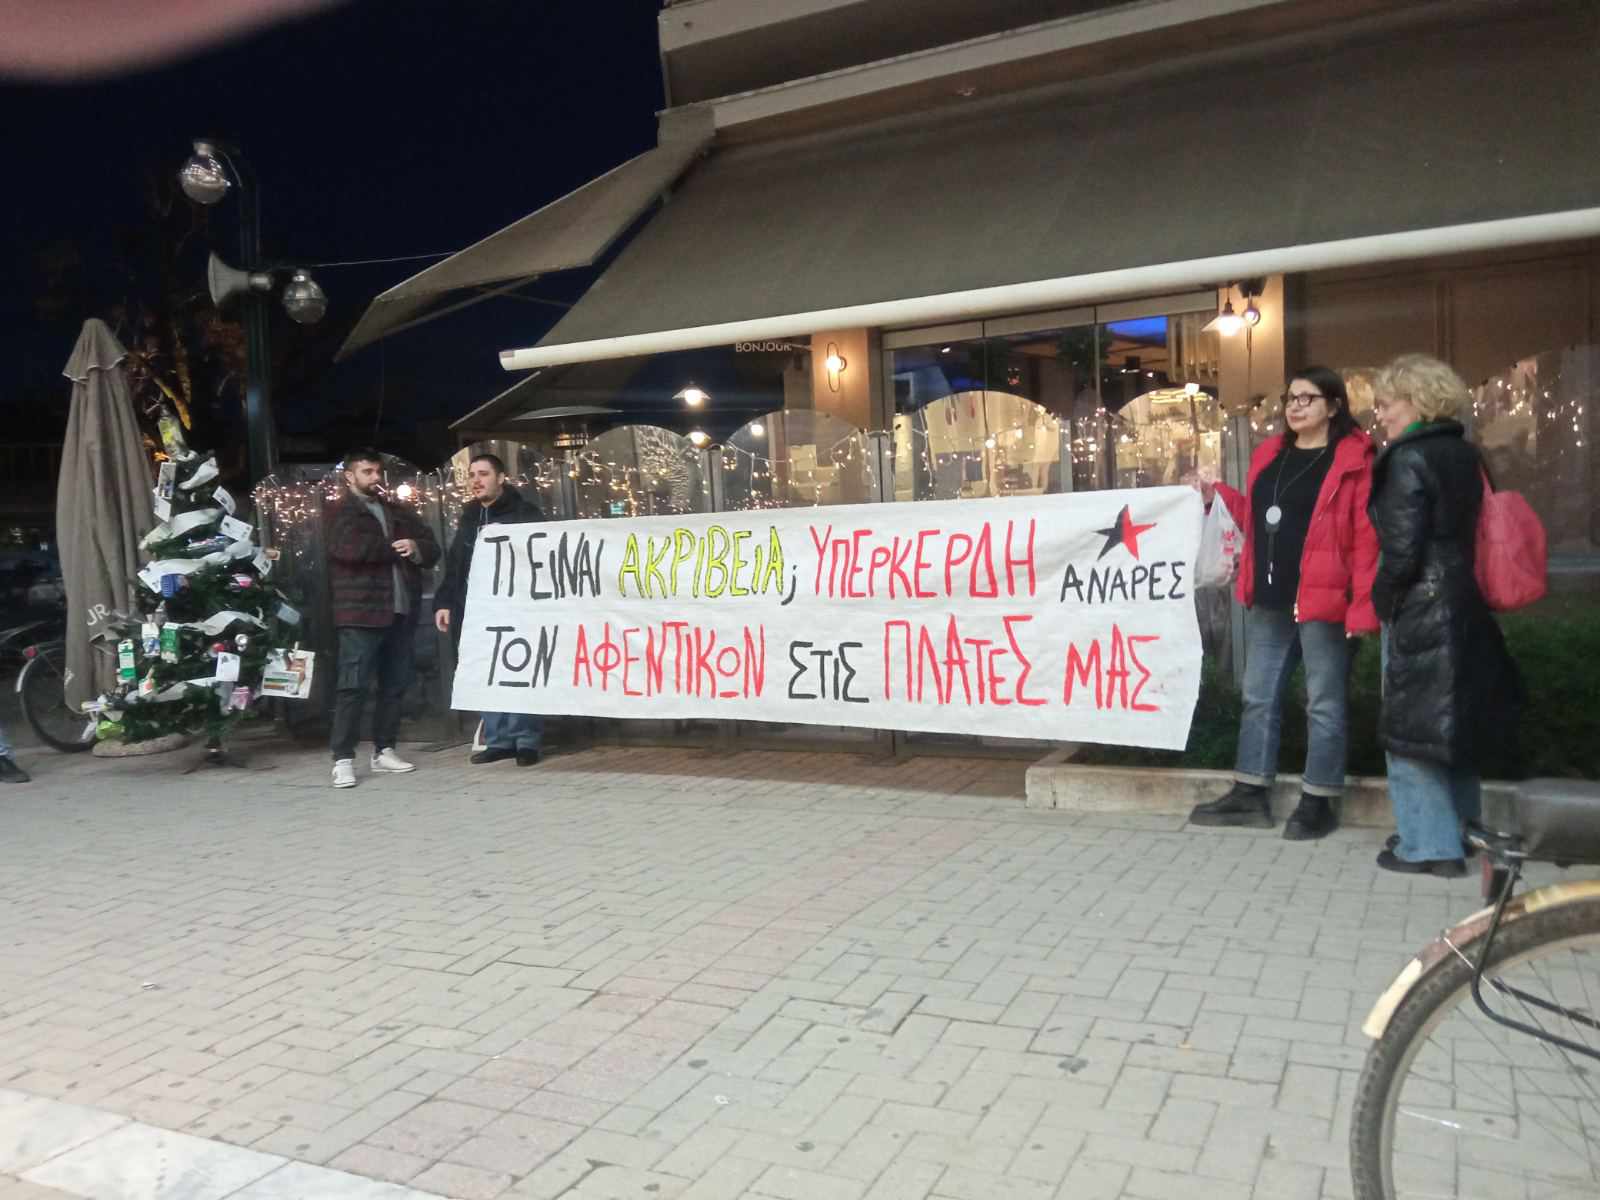 BONJOUR
ΤΙ ΕΙΝΑΙ ΑΚΡΙΒΕΙΑ; ΥΠΕΡΚΕΡΔΗ
ΤΩΝ ΑΦΕΝΤΙΚΩΝ ΣΤΙΣ ΠΛΑΤΕΣ ΜΑΣ
ΑΝΑΡΕΣ